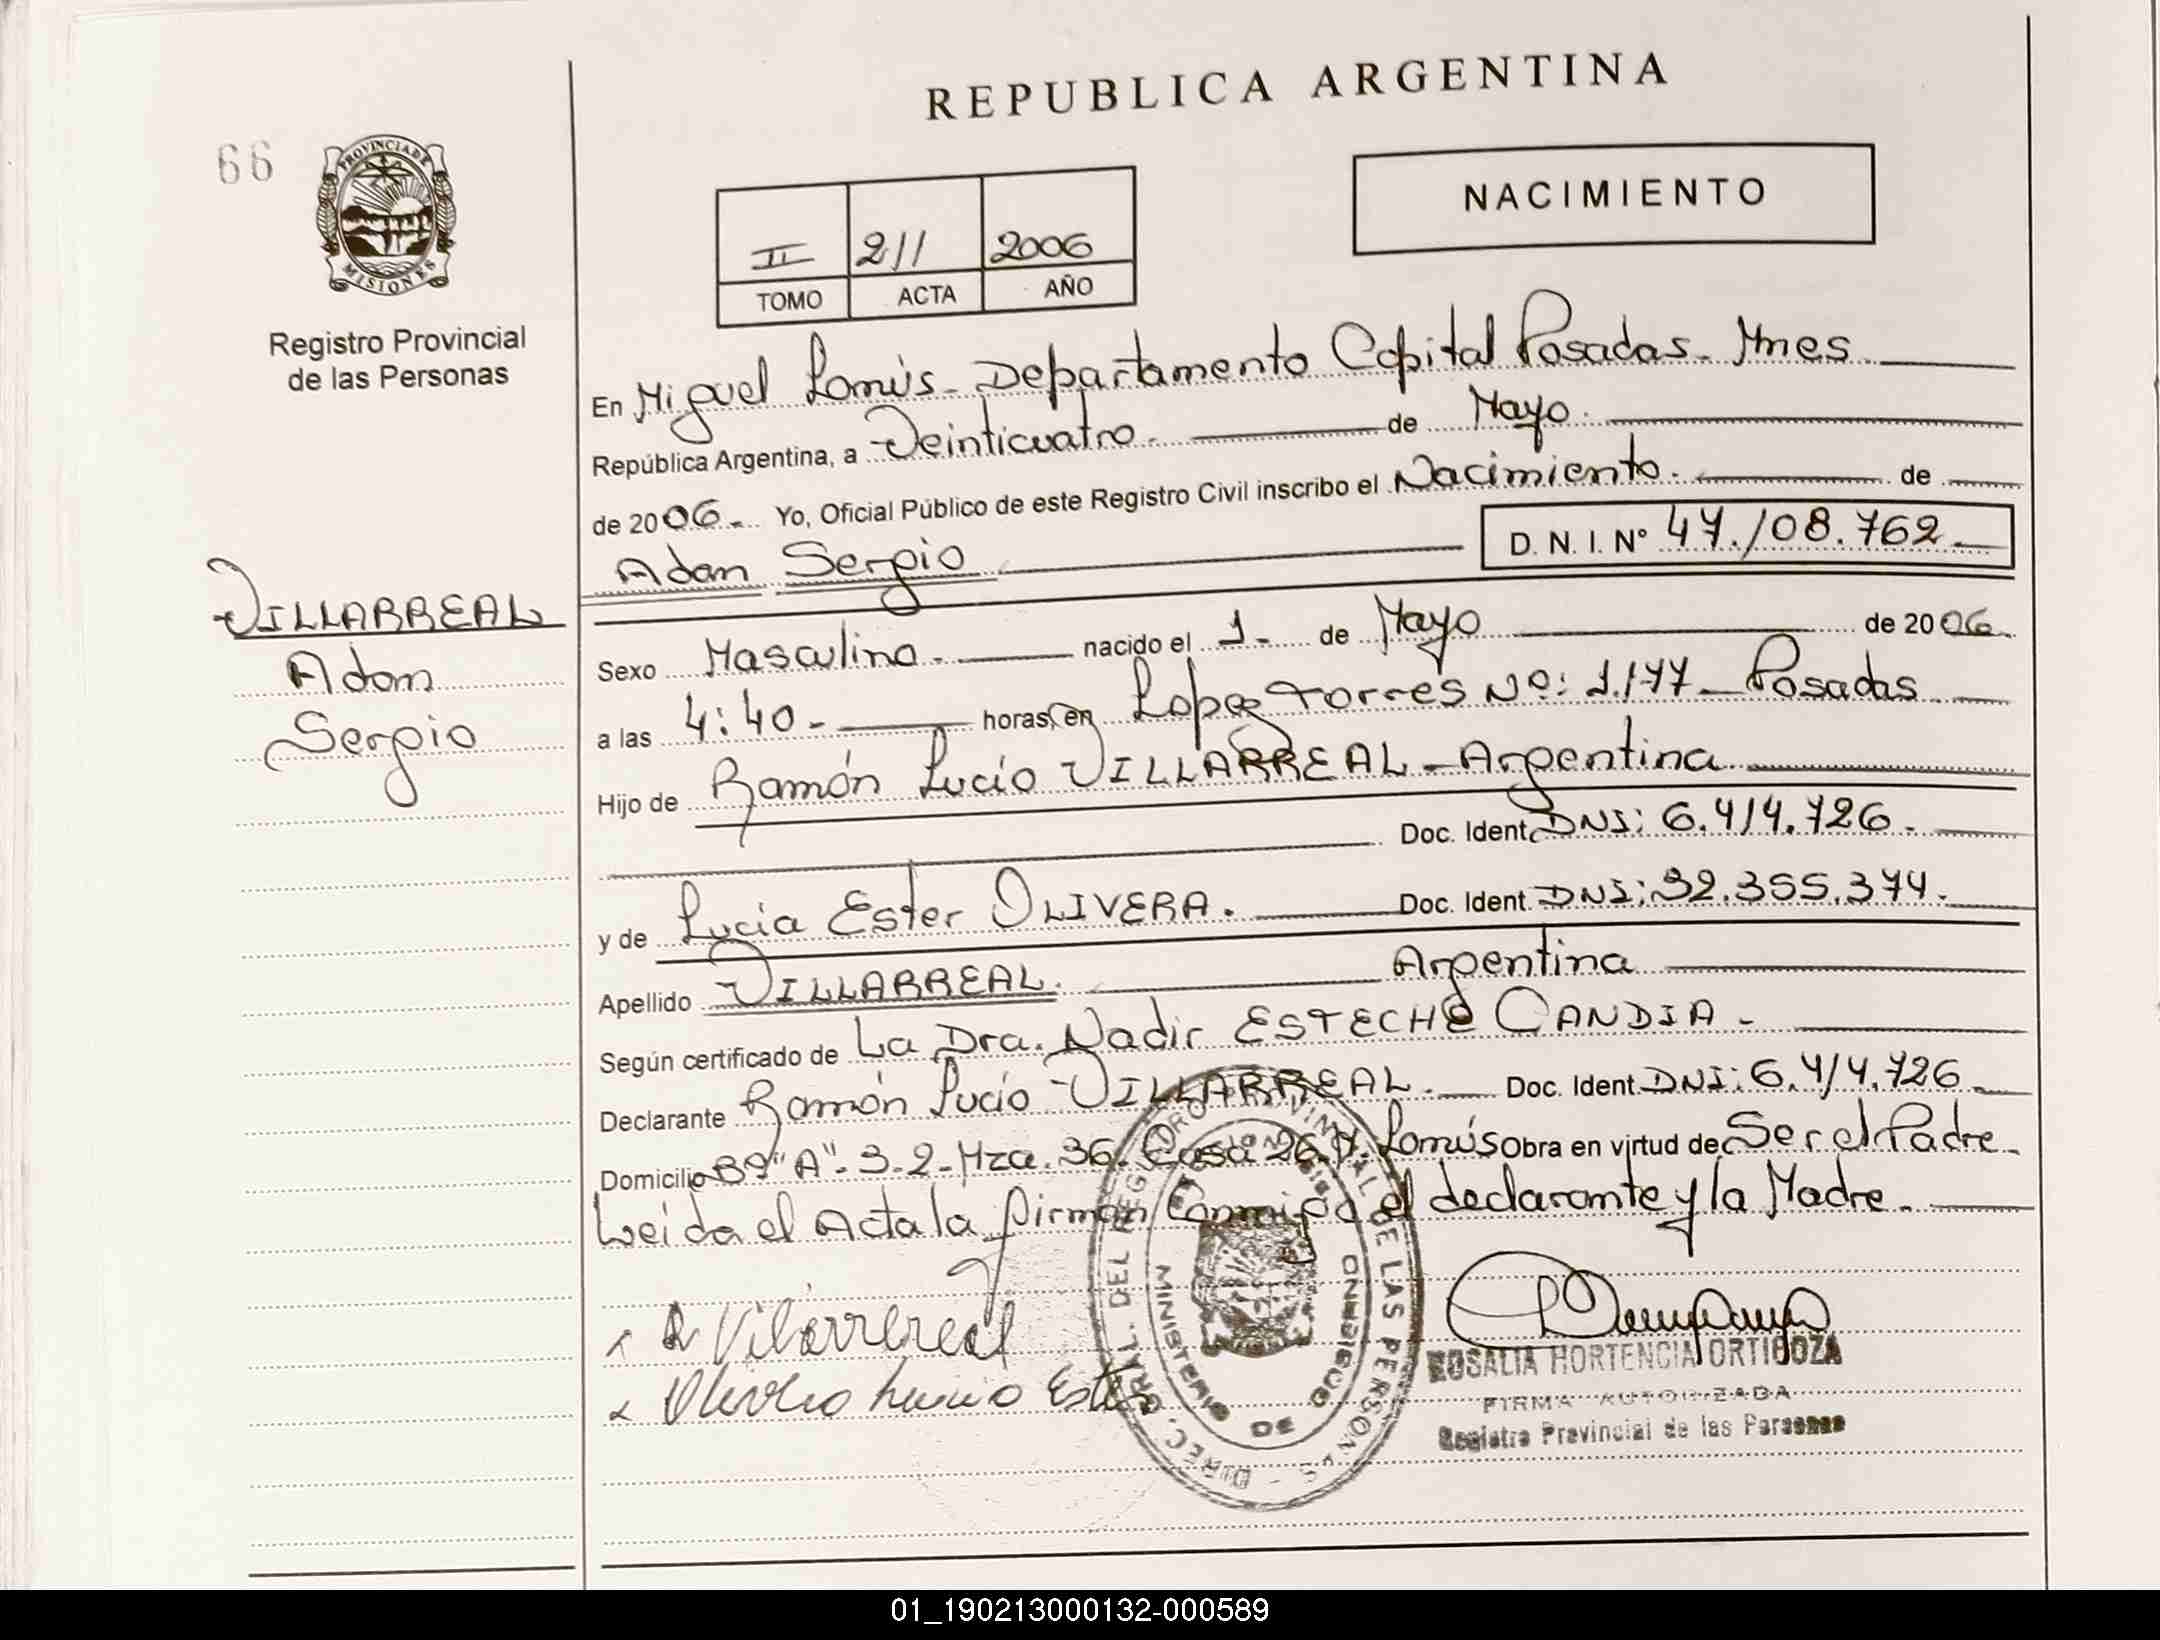 REPUBLICA ARGENTINA
66
PROVINCIA DE
MISIONES
Registro Provincial
de las Personas
NACIMIENTO
II 211 2006
TOMO ACTA AÑO
En Miguel Lanús - Departamento Capital Posadas - Mnes
República Argentina, a Veinticuatro. de Mayo.
de 2006. Yo, Oficial Público de este Registro Civil inscribo el Nacimiento. de
Adan Sergio D. N. I. Nº 47.108.762
VILLARREAL
Adan
Sergio
Sexo Masculino. nacido el 1. de Mayo de 2006.
a las 4:40 - horas, en Lopez Torres Nº: 1.177 - Posadas
Hijo de Ramón Lucio VILLARREAL - Argentina
Doc. Ident. DNI: 6.414.726.
y de Lucia Ester OLIVERA. Doc. Ident. DNI: 32.355.374.
Apellido VILLARREAL. Argentina
Según certificado de La Dra. Nadir ESTECHE CANDIA -
Declarante Ramón Lucio VILLARREAL. Doc. Ident. DNI: 6.414.726
Domicilio Bº "A" - 3-2 - Mza. 36. Casa 26. M. Lanús Obra en virtud de Ser el Padre.
Leida el Acta la firman Conmigo el declarante y la Madre.
R Vilarrereal
Ester
ROSALIA HORTENCIA ORTIGOZA
FIRMA AUTORIZADA
Registro Provincial de las Personas
DIREC. GRAL. DEL REGISTRO PROVINCIAL DE LAS PERSONAS
MINISTERIO DE GOBIERNO
01_190213000132-000589